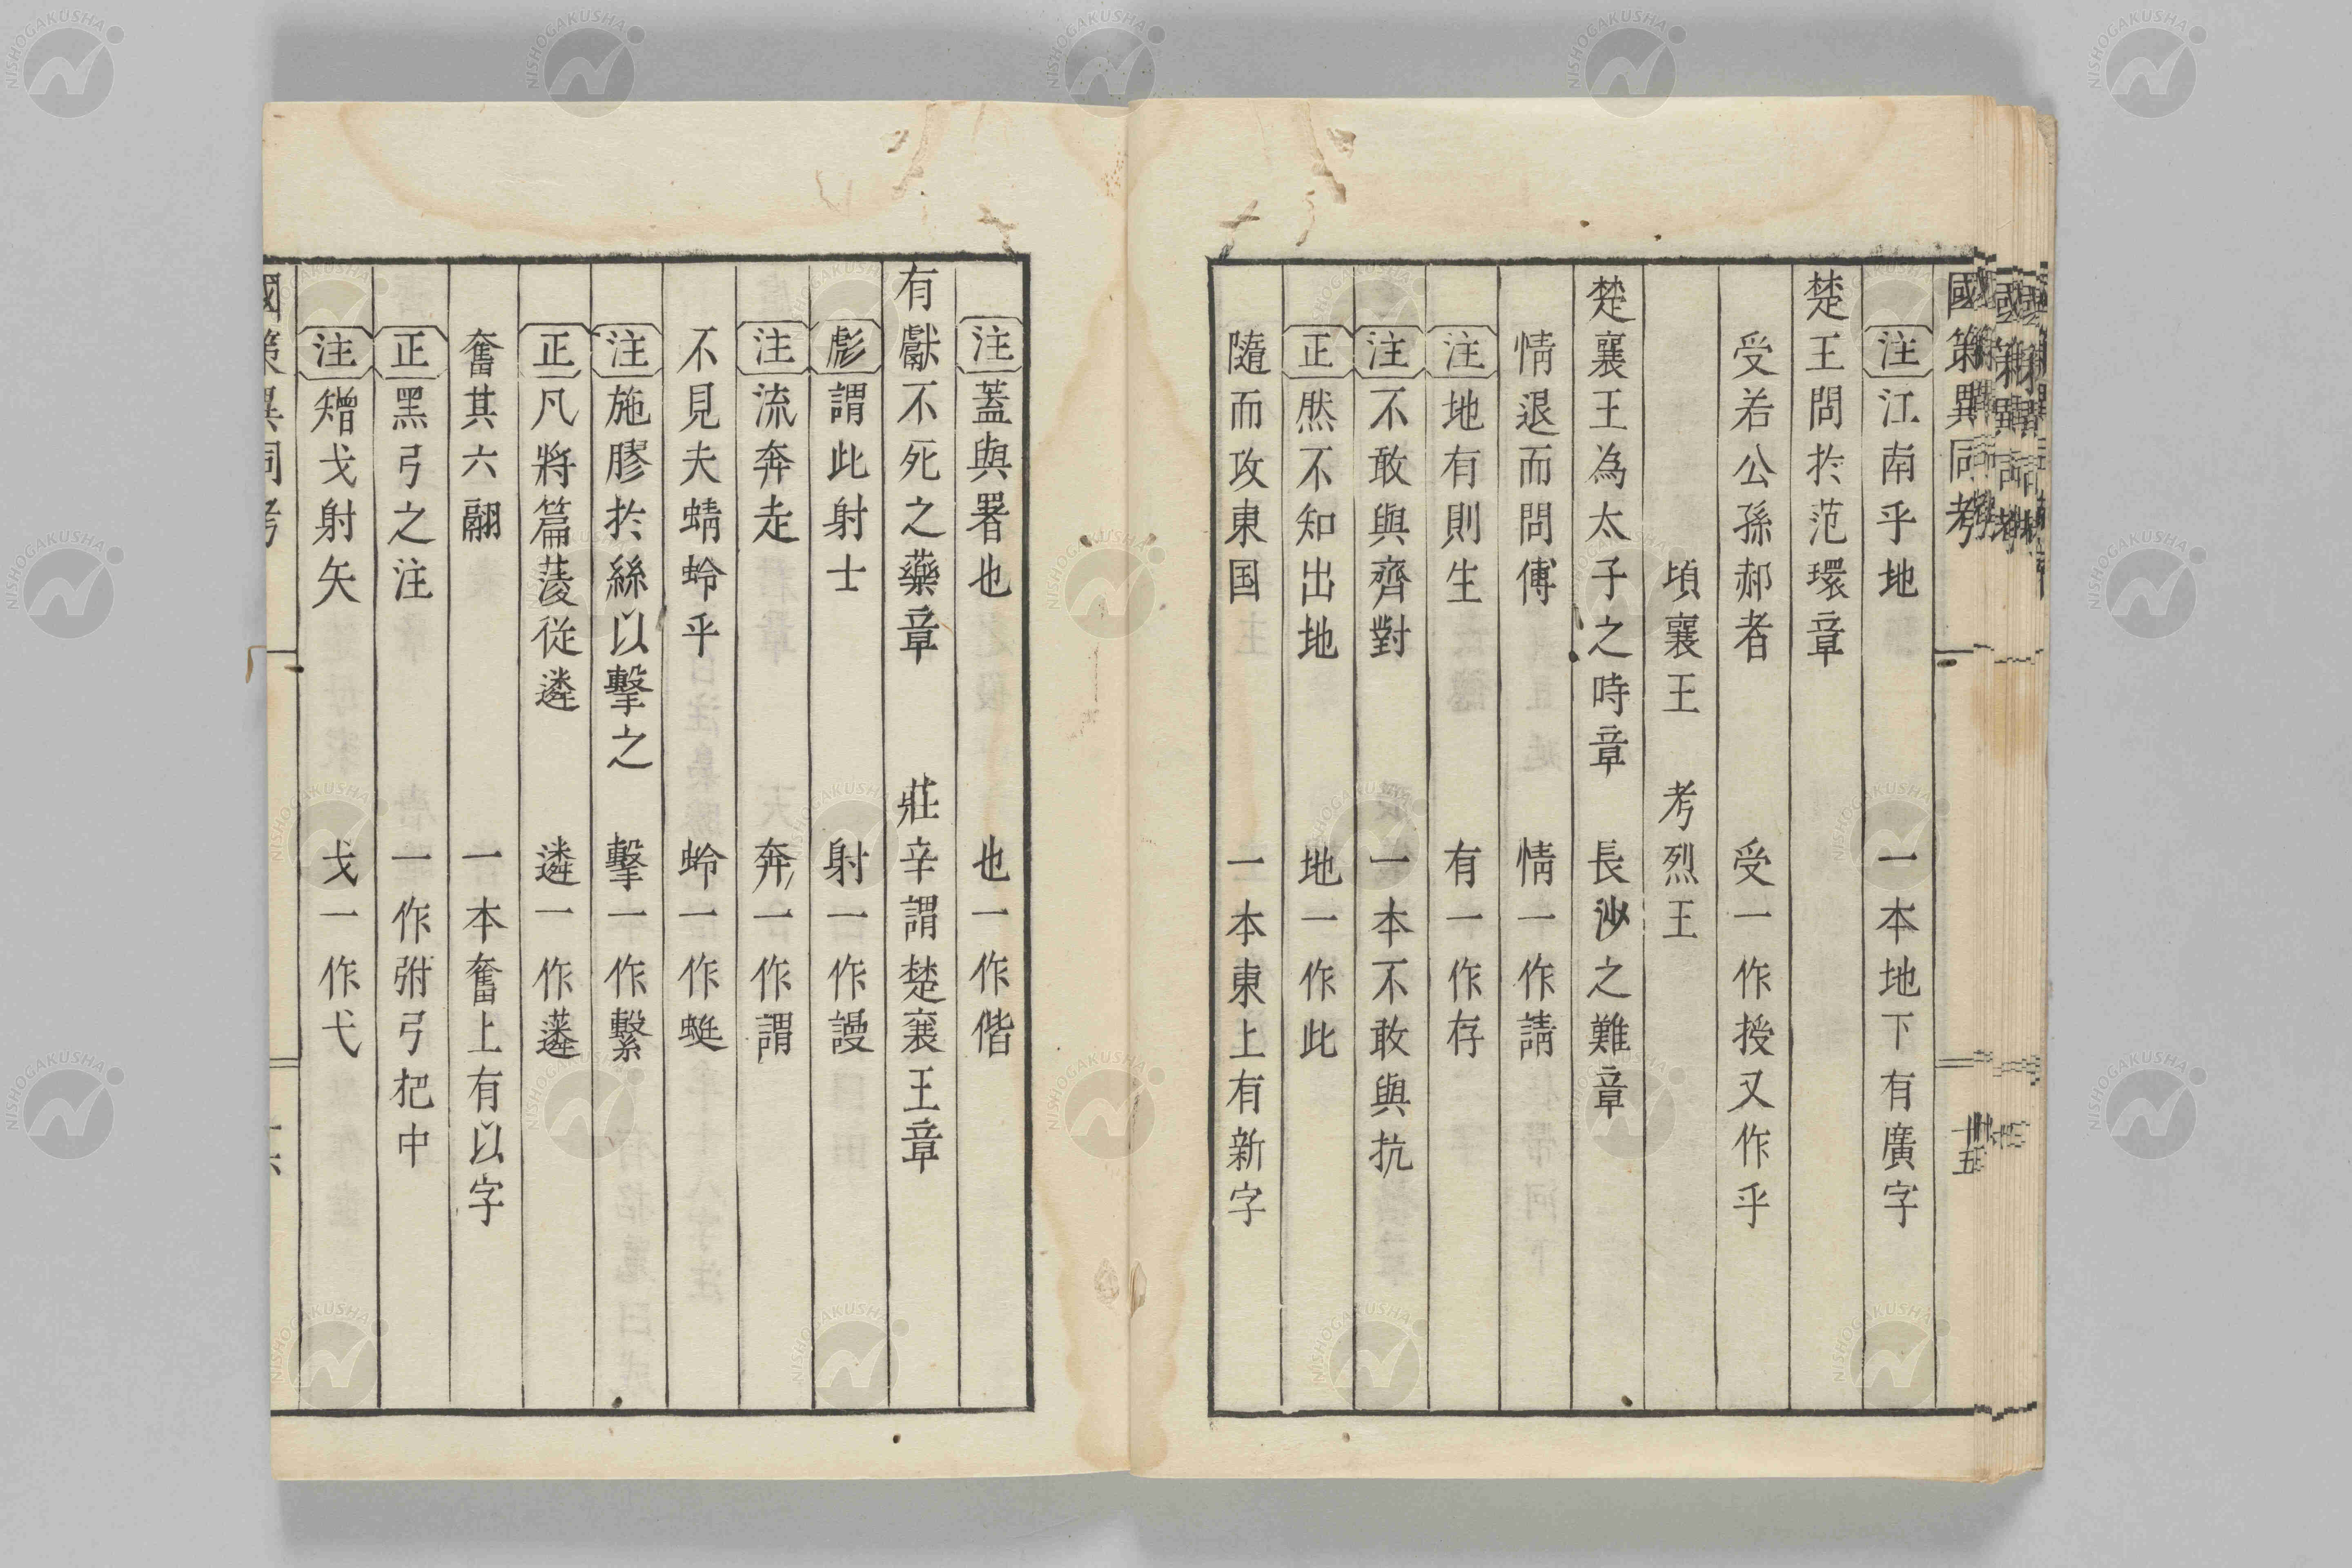 國策異同考 十五
注 江南乎地 一本地下有廣字
楚王問於范環章
受若公孫郝者 受一作授又作乎
頃襄王 考烈王
楚襄王為太子之時章 長沙之難章
情退而問傅 情一作請
注 地有則生 有一作存
注 不敢與齊對 一本不敢與抗
正 然不知出地 地一作此
隨而攻東国 一本東上有新字
注 蓋與署也 也一作偕
有獻不死之藥章 莊辛謂楚襄王章
彪 謂此射士 射一作謾
注 流奔走 奔一作謂
不見夫蜻蛉乎 蛉一作蜓
注 施膠於絲以擊之 擊一作繫
正 凡將篇蔆從遴 遴一作薳
奮其六翮 一本奮上有以字
正 黑弓之注 一作弣弓把中
注 矰戈射矢 戈一作弋
國策異同考
NISHOGAKUSHA